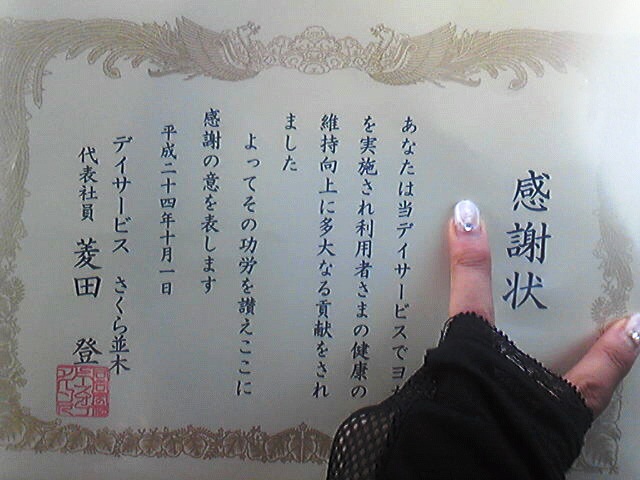 感謝状
あなたは当デイサービスでヨガ
を実施され利用者さまの健康の
維持向上に多大なる貢献をされ
ました
よってその功労を讃えここに
感謝の意を表します
平成二十四年十月一日
デイサービス さくら並木
代表社員 菱田 登